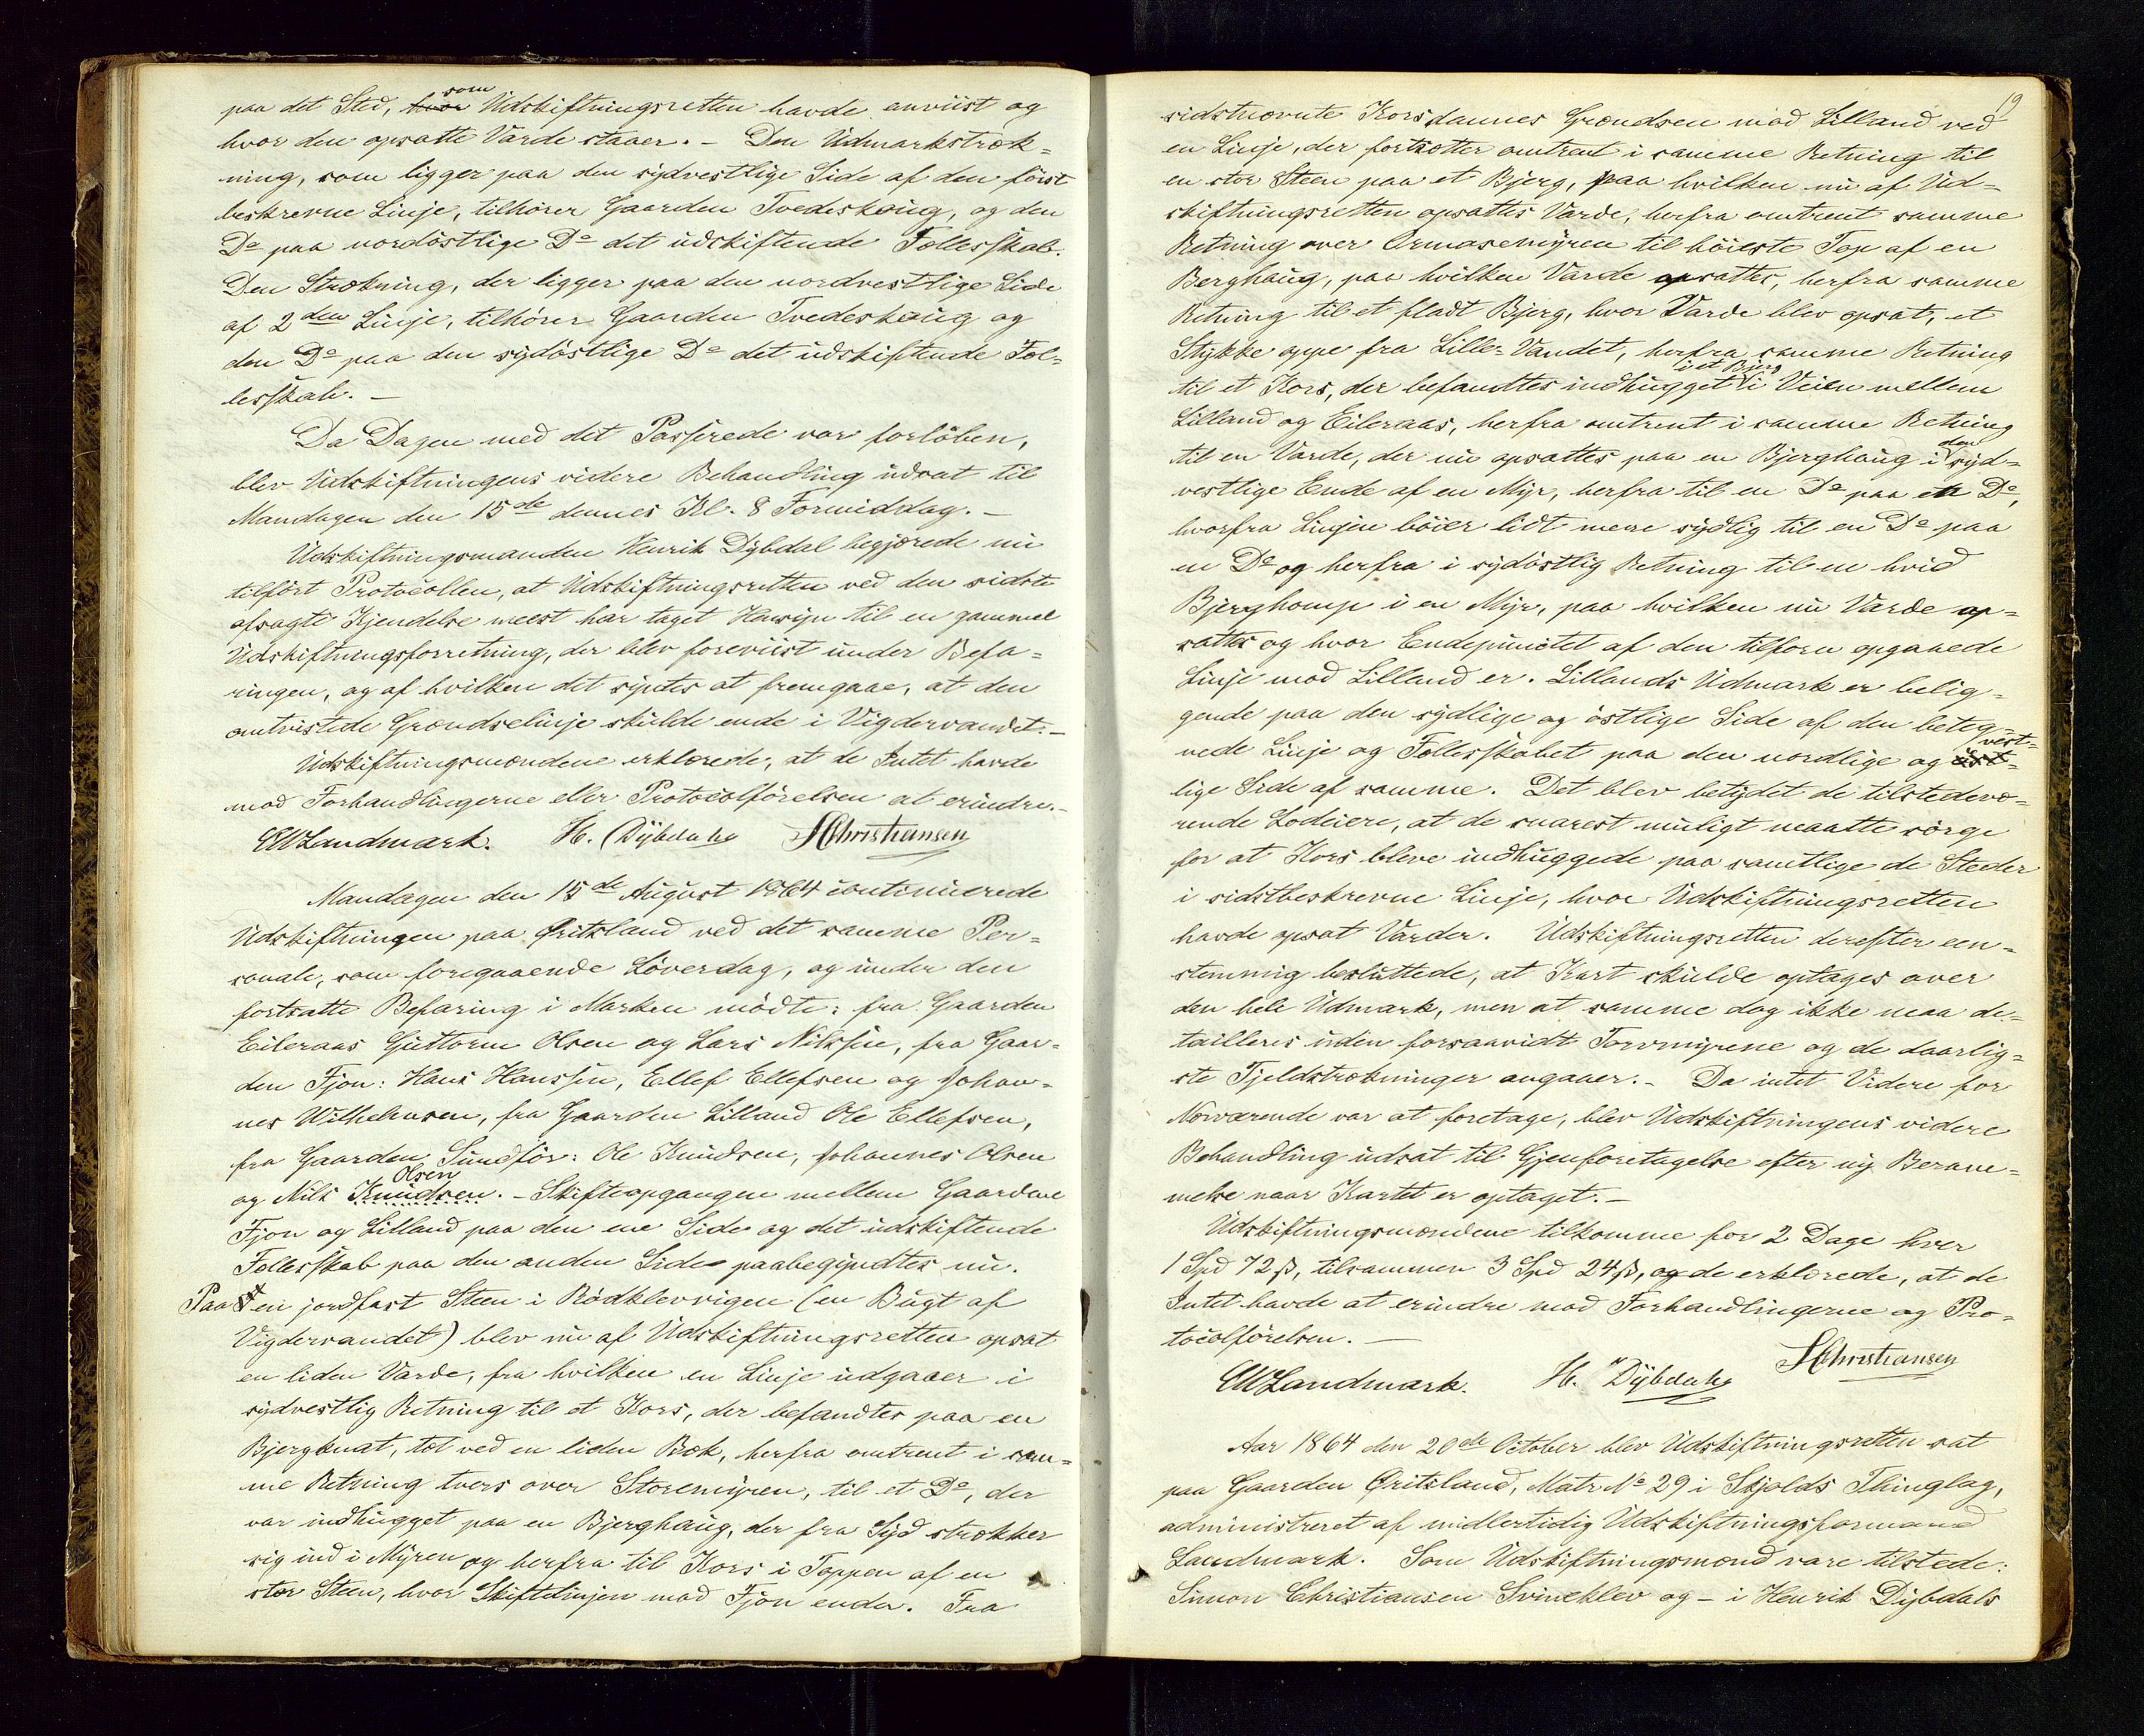 paa det Sted, hvor som Udskiftningsretten havde anviist og
hvor den opsatte Varde staaer. – Den Udmarkstræk=
ning, som ligger paa den sydvestlige Side af den först
beskrevne Linje, tilhører Gaarden Tvedeshaug, og den
Do paa nordöstlige Do det udskiftende Fællesskab.
Den Strækning, der ligger paa den nordvestlige Side
af 2den Linje, tilhører Gaarden Tvedeshaug og
den Do paa den sydöstlige Do det udskiftende Fæl=
lesskab. –
Da Dagen med det Passerede var forlöben,
blev Udskiftningens videre Behandling udsat til
Mandagen den 15de dennes Kl. 8 Formiddag. –
Udskiftningsmanden Henrik Dybdal begjærede nu
tilfört Protocollen, at Udskiftningsretten ved den sidste
afsagte Kjendelse meest har taget Hensyn til en gammel
Udskiftningsforretning, der blev foreviist under Befa=
ringen, og af hvilken det syntes at fremgaae, at den
omtvistede Grændselinje skulde ende i Vigdervandet. –
Udskiftningsmændene erklærede, at de Intet havde
mod Forhandlingerne eller Protocolförelsen at erindre. –
CWLandmark. H. Dÿbdahl SChristiansen
Mandagen den 15de August 1864 continuerede
Udskiftningen paa Qritsland ved det samme Per=
sonale, som foregaaende Löverdag, og under den
fortsatte Befaring i Marken mödte: fra Gaarden
Eileraas Guttorm Olsen og Lars Nilssen, fra Gaar=
den Fjon: Hans Hanssen, Ellef Ellefsen og Johan=
nes Wilhelmsen, fra Gaarden Lilland Ole Ellefsen,
fra Gaarden Sundför: Ole Knudsen, Johannes Olsen
og Nils Knudsen Olsen. – Skifteopgangen mellem Gaardene
Fjon og Lilland paa den ene Side og det udskiftende
Fællesskab paa den anden Side paabegyndtes nu.
Paa en jordfast Steen i Rödklevvigen (en Bugt af
Vigdervandet) blev nu af Udskiftningsretten opsat
en liden Varde, fra hvilken en Linje udgaaer i
sydvestlig Retning til et Kors, der befandtes paa en
Bjergknat, tæt ved en liden Bæk, herfra omtrent i sam=
me Retning tvers over Storemyren, til et Do, der
var indhugget paa en Bjerghaug, der fra Syd strækker
sig ind i Myren og herfra til Kors i Toppen af en
stor Steen, hvor Skiftelinjen mod Fjon ender. Fra
19
sidstnævnte Kors dannes Grændsen mod Lilland ved
en Linje, der fortsætter omtrent i samme Retning til
en stor Steen paa et Bjerg, paa hvilken nu af Ud=
skiftningsretten opsattes Varde, herfra omtrent samme
Retning over Ormasemyren til höieste Top af en
Berghaug, paa hvilken Varde opsattes, herfra samme
Retning til et fladt Bjerg, hvor Varde blev opsat, et
Stykke oppe fra Lille=Vandet, herfra samme Retning
til et Kors, der befandtes indhugget i et Bjerg i Veien mellem
Lilland og Eileraas, herfra omtrent i samme Retning
til en Varde, der nu opsattes paa en Bjerghaug i den syd=
vestlige Ende af en Myr, herfra til en Do paa en Do,
hvorfra Linjen böier lidt mere sydlig til en Do paa
en Do og herfra i sydöstlig Retning til en hvid
Bjerghomp i en Myr, paa hvilken nu Varde op=
sattes og hvor Endepunctet af den tilforn opgaaede
Linje mod Lilland er. Lillands Udmark er belig=
gende paa den sydlige og östlige Side af den beteg=
nede Linje og Fællesskabet paa den nordlige og öst= vest=
lige Side af samme. Det blev betydet de tilstedevæ=
rende Lodeiere, at de snarest muligt maatte sörge
for at Kors bleve indhuggede paa samtlige de Steder
i sidstbeskrevne Linje, hvor Udskiftningsretten
havde opsat Varder. Udskiftningsretten derefter een=
stemmig besluttede, at Kart skulde optages over
den hele Udmark, men at samme dog ikke maa de=
tailleres uden forsaavidt Torvmyrene og de daarlig=
ste Fjeldstrækninger angaaer. – Da intet Videre for
Nærværende var at foretage, blev Udskiftningens videre
Behandling udsat til Gjenforetagelse efter ny Beram=
melse naar Kartet er optaget. –
Udskiftningsmændene tilkomme for 2 Dage hver
1 Spd 72 ß, tilsammen 3 Spd 24 ß, og de erklærede, at de
Intet havde at erindre mod Forhandlingerne og Pro=
tocolförelsen. –
CWLandmark. H. Dÿbdahl SChristiansen
Aar 1864 den 20de October blev Udskiftningsretten sat
paa Gaarden Qritsland, Matr. No 29 i Skjolds Thinglag,
administreret af midlertidig Udskiftningsformand
Landmark. Som Udskiftningsmænd vare tilstede:
Simon Christiansen Svineklev og – i Henrik Dybdals